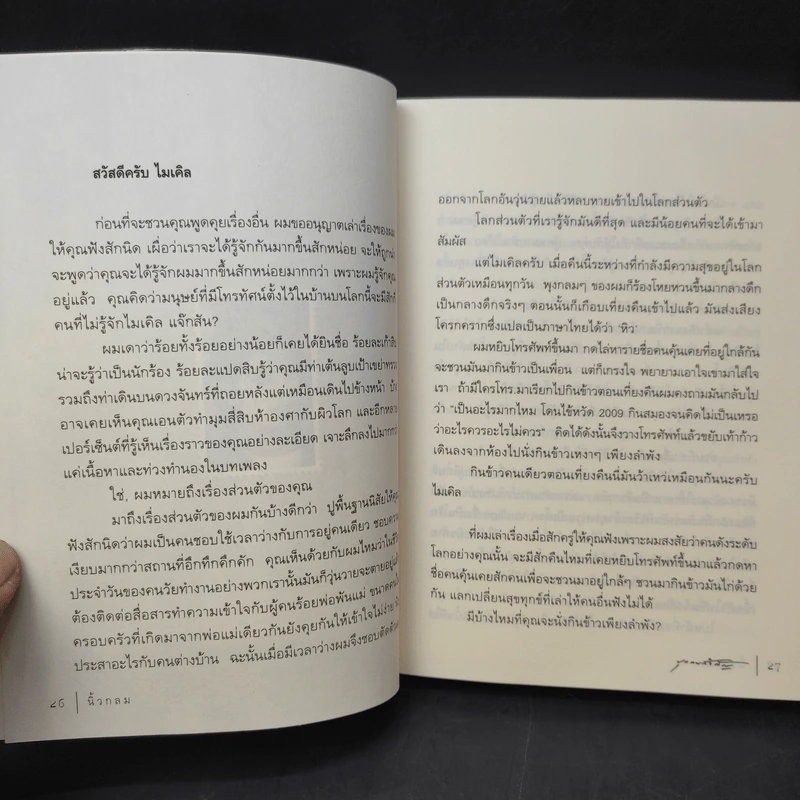 สวัสดีครับ ไมเคิล
ก่อนที่จะชวนคุณพูดคุยเรื่องอื่น ผมขออนุญาตเล่าเรื่องของผม
ให้คุณฟังสักนิด เผื่อว่าเราจะได้รู้จักกันมากขึ้นสักหน่อย จะให้ถูกน่า
จะพูดว่าคุณจะได้รู้จักผมมากขึ้นสักหน่อยมากกว่า เพราะผมรู้จักคุณ
อยู่แล้ว คุณคิดว่ามนุษย์ที่มีโทรทัศน์ตั้งไว้ในบ้านบนโลกนี้จะมีสักกี่
คนที่ไม่รู้จักไมเคิล แจ๊กสัน?
ผมเดาว่าร้อยทั้งร้อยอย่างน้อยก็เคยได้ยินชื่อ ร้อยละเก้าสิบ
น่าจะรู้ว่าเป็นนักร้อง ร้อยละแปดสิบรู้ว่าคุณมีท่าเต้นลูบเป้าเขย่าทรวง
รวมถึงท่าเดินบนดวงจันทร์ที่ถอยหลังแต่เหมือนเดินไปข้างหน้า บ้าง
อาจเคยเห็นคุณเอนตัวทำมุมสี่สิบห้าองศากับผิวโลก และอีกหลาย
เปอร์เซ็นต์ที่รู้เห็นเรื่องราวของคุณอย่างละเอียด เจาะลึกลงไปมากกว่า
แค่เนื้อหาและท่วงทำนองในบทเพลง
ใช่, ผมหมายถึงเรื่องส่วนตัวของคุณ
มาถึงเรื่องส่วนตัวของผมกันบ้างดีกว่า ปูพื้นฐานนิสัยให้คุณ
ฟังสักนิดว่าผมเป็นคนชอบใช้เวลาว่างกับการอยู่คนเดียว ชอบความ
เงียบมากกว่าสถานที่อึกทึกคึกคัก คุณเห็นด้วยกับผมไหมว่าในชีวิต
ประจำวันของคนวัยทำงานอย่างพวกเรานั้นมันก็วุ่นวายจะตายอยู่แล้ว
ต้องติดต่อสื่อสารทำความเข้าใจกับผู้คนร้อยพ่อพันแม่ ขนาดคนใน
ครอบครัวที่เกิดมาจากพ่อแม่เดียวกันยังคุยกันให้เข้าใจไม่ง่าย
ประสาอะไรกับคนต่างบ้าน ฉะนั้นเมื่อมีเวลาว่างผมจึงชอบตัดตัวเอง
26 นิ้วกลม
ออกจากโลกอันวุ่นวายแล้วหลบหายเข้าไปในโลกส่วนตัว
โลกส่วนตัวที่เรารู้จักมันดีที่สุด และมีน้อยคนที่จะได้เข้ามา
สัมผัส
แต่ไมเคิลครับ เมื่อคืนนี้ระหว่างที่กำลังมีความสุขอยู่ในโลก
ส่วนตัวเหมือนทุกวัน พุงกลมๆ ของผมก็ร้องโหยหวนขึ้นมากลางดึก
เป็นกลางดึกจริงๆ ตอนนั้นก็เกือบเที่ยงคืนเข้าไปแล้ว มันส่งเสียง
โครกครากซึ่งแปลเป็นภาษาไทยได้ว่า 'หิว'
ผมหยิบโทรศัพท์ขึ้นมา กดไล่หารายชื่อคนคุ้นเคยที่อยู่ใกล้กัน
จะชวนมันมากินข้าวเป็นเพื่อน แต่ก็เกรงใจ พยายามเอาใจเขามาใส่ใจ
เรา ถ้ามีใครโทร.มาเรียกไปกินข้าวตอนเที่ยงคืนผมคงถามมันกลับไป
ว่า "เป็นอะไรมากไหม โดนไข้หวัด 2009 กินสมองจนคิดไม่เป็นเหรอ
ว่าอะไรควรอะไรไม่ควร" คิดได้ดังนั้นจึงวางโทรศัพท์แล้วขยับเท้าก้าว
เดินลงจากห้องไปนั่งกินข้าวเหงาๆ เพียงลำพัง
กินข้าวคนเดียวตอนเที่ยงคืนนี่มันว้าเหว่เหมือนกันนะครับ
ไมเคิล
ที่ผมเล่าเรื่องเมื่อสักครู่ให้คุณฟังเพราะผมสงสัยว่าคนดังระดับ
โลกอย่างคุณนั้น จะมีสักคืนไหมที่เคยหยิบโทรศัพท์ขึ้นมาแล้วกดหา
ชื่อคนคุ้นเคยสักคนเพื่อจะชวนมาอยู่ใกล้ๆ ชวนมากินข้าวมันไก่ด้วย
กัน แลกเปลี่ยนสุขทุกข์ที่เล่าให้คนอื่นฟังไม่ได้
มีบ้างไหมที่คุณจะนั่งกินข้าวเพียงลำพัง?
27